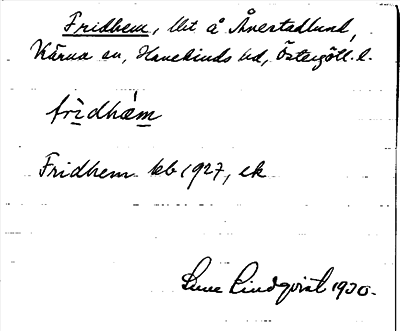 Fridhem, lht å Åverstadlund,
Kärna sn, Hanekinds hd, Östergötl. l.
frìdhä́m
Fridhem kb 1927, ek
Sune Lindqvist 1930.